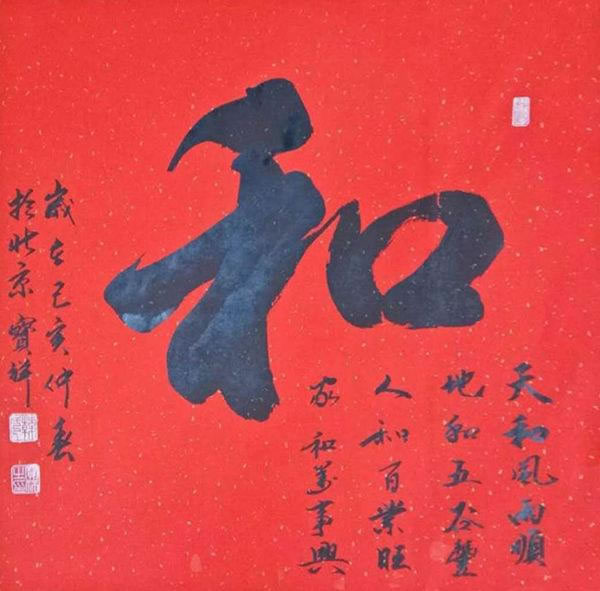 和
天和風雨順
地和五谷豐
人和百業旺
家和萬事興
歲在己亥仲春
於北京寶祥